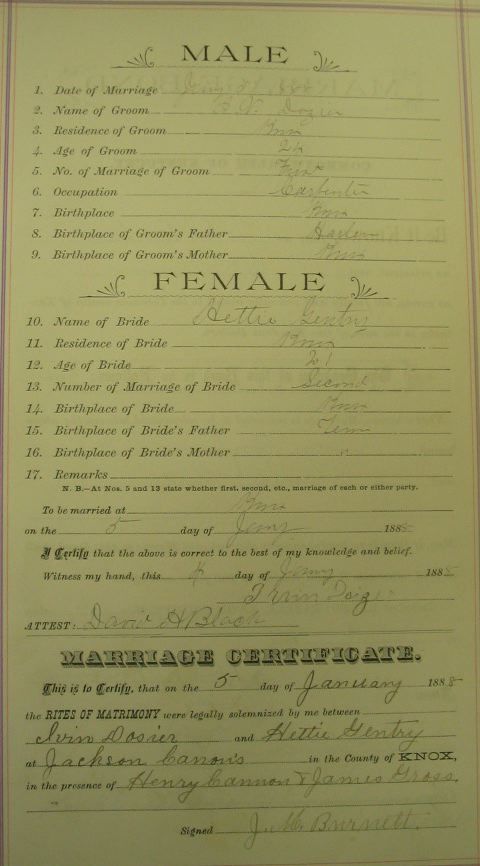 MALE
1. Date of Marriage
2. Name of Groom Dozier
3. Residence of Groom Knox
4. Age of Groom 24
5. No. of Marriage of Groom First
6. Occupation Carpenter
7. Birthplace Knox
8. Birthplace of Groom's Father Harlan
9. Birthplace of Groom's Mother Knox
FEMALE
10. Name of Bride Hettie Gentry
11. Residence of Bride Knox
12. Age of Bride 21
13. Number of Marriage of Bride Second
14. Birthplace of Bride Knox
15. Birthplace of Bride's Father Tenn
16. Birthplace of Bride's Mother "
17. Remarks
N. B.—At Nos. 5 and 13 state whether first, second, etc., marriage of each or either party.
To be married at Knox
on the 5 day of Jany 1888
I Certify that the above is correct to the best of my knowledge and belief.
Witness my hand, this 4 day of Jany 1888
ATTEST: David H Black
MARRIAGE CERTIFICATE.
This is to Certify, that on the 5 day of January 1888
the RITES OF MATRIMONY were legally solemnized by me between
Irvin Dosier and Hettie Gentry
at Jackson Canon's in the County of KNOX,
in the presence of Henry Cannon & James Gross.
Signed J. M. Burnett